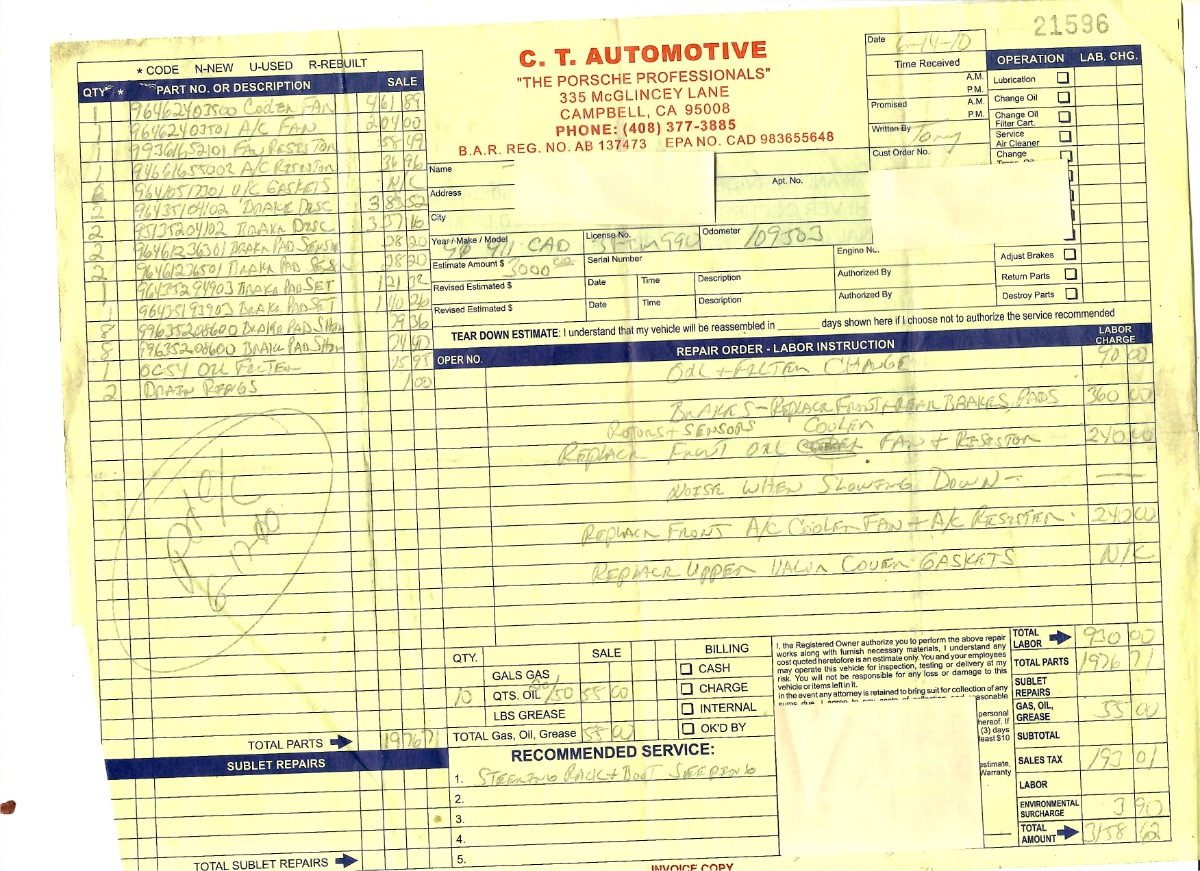 21596
* CODE N-NEW U-USED R-REBUILT
QTY * PART NO. OR DESCRIPTION SALE
1 96462403500 COOLER FAN 461 89
1 96462403501 A/C FAN 204 00
1 99361652101 FAN RESISTOR 58 49
1 94661655002 A/C RESISTOR 36 96
6 96410517701 V/C GASKETS N/C
2 96435104102 BRAKE DISC 383 52
2 95135204102 BRAKE DISC 337 16
2 96461236301 BRAKE PAD SENS 28 20
2 96461236501 BRAKE PAD SENS 28 20
1 96435294903 BRAKE PAD SET 121 32
1 96435193903 BRAKE PAD SET 140 26
8 99635208600 BRAKE PAD SHIM 79 36
8 99635208600 BRAKE PAD SHIM
1 OC54 OIL FILTER 15 95
2 DRAIN RINGS 1 00
TOTAL PARTS 1976 71
SUBLET REPAIRS
TOTAL SUBLET REPAIRS
C. T. AUTOMOTIVE
"THE PORSCHE PROFESSIONALS"
335 McGLINCEY LANE
CAMPBELL, CA 95008
PHONE: (408) 377-3885
B.A.R. REG. NO. AB 137473 EPA NO. CAD 983655648
Date 6-14-10
Time Received
A.M.
P.M.
Promised A.M.
P.M.
Written By Tony
Cust Order No.
OPERATION LAB. CHG.
Lubrication
Change Oil
Change Oil
Filter Cart.
Service
Air Cleaner
Change
Adjust Brakes
Return Parts
Destroy Parts
Name
Address Apt. No.
City
Year / Make / Model 90 911 CAD License No. Odometer 109503
Estimate Amount $ 3000 Serial Number Engine No.
Revised Estimated $ Date Time Description Authorized By
Revised Estimated $ Date Time Description Authorized By
TEAR DOWN ESTIMATE: I understand that my vehicle will be reassembled in ______ days shown here if I choose not to authorize the service recommended
OPER NO. REPAIR ORDER - LABOR INSTRUCTION LABOR CHARGE
OIL + FILTER CHANGE 90 00
BRAKES - REPLACE FRONT + REAR BRAKES, PADS 360 00
ROTORS + SENSORS COOLER
REPLACE FRONT OIL FAN + RESISTOR 240 00
NOISE WHEN SLOWING DOWN -
REPLACE FRONT A/C COOLER FAN + A/C RESISTER 240 00
REPLACE UPPER VALVE COVER GASKETS N/C
QTY. SALE
GALS GAS
10 QTS. OIL 55 00
LBS GREASE
TOTAL Gas, Oil, Grease 55 00
BILLING
CASH
CHARGE
INTERNAL
OK'D BY
I, the Registered Owner authorize you to perform the above repair
works along with furnish necessary materials, I understand any
cost quoted heretofore is an estimate only. You and your employees
may operate this vehicle for inspection, testing or delivery at my
risk. You will not be responsible for any loss or damage to this
vehicle or items left in it.
in the event any attorney is retained to bring suit for collection of any
personal
hereof. If
(3) days
least $10
estimate.
Warranty
TOTAL LABOR 930 00
TOTAL PARTS 1976 71
SUBLET REPAIRS
GAS, OIL, GREASE 55 00
SUBTOTAL
SALES TAX 193 01
LABOR
ENVIRONMENTAL SURCHARGE 3 90
TOTAL AMOUNT 3158 62
RECOMMENDED SERVICE:
1. STEERING RACK + BOOT SEEPING
2.
3.
4.
5.
INVOICE COPY